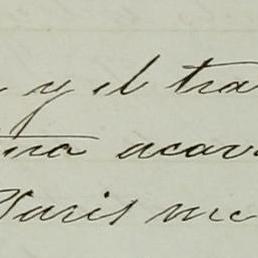 y el tra
ina acav
Paris me